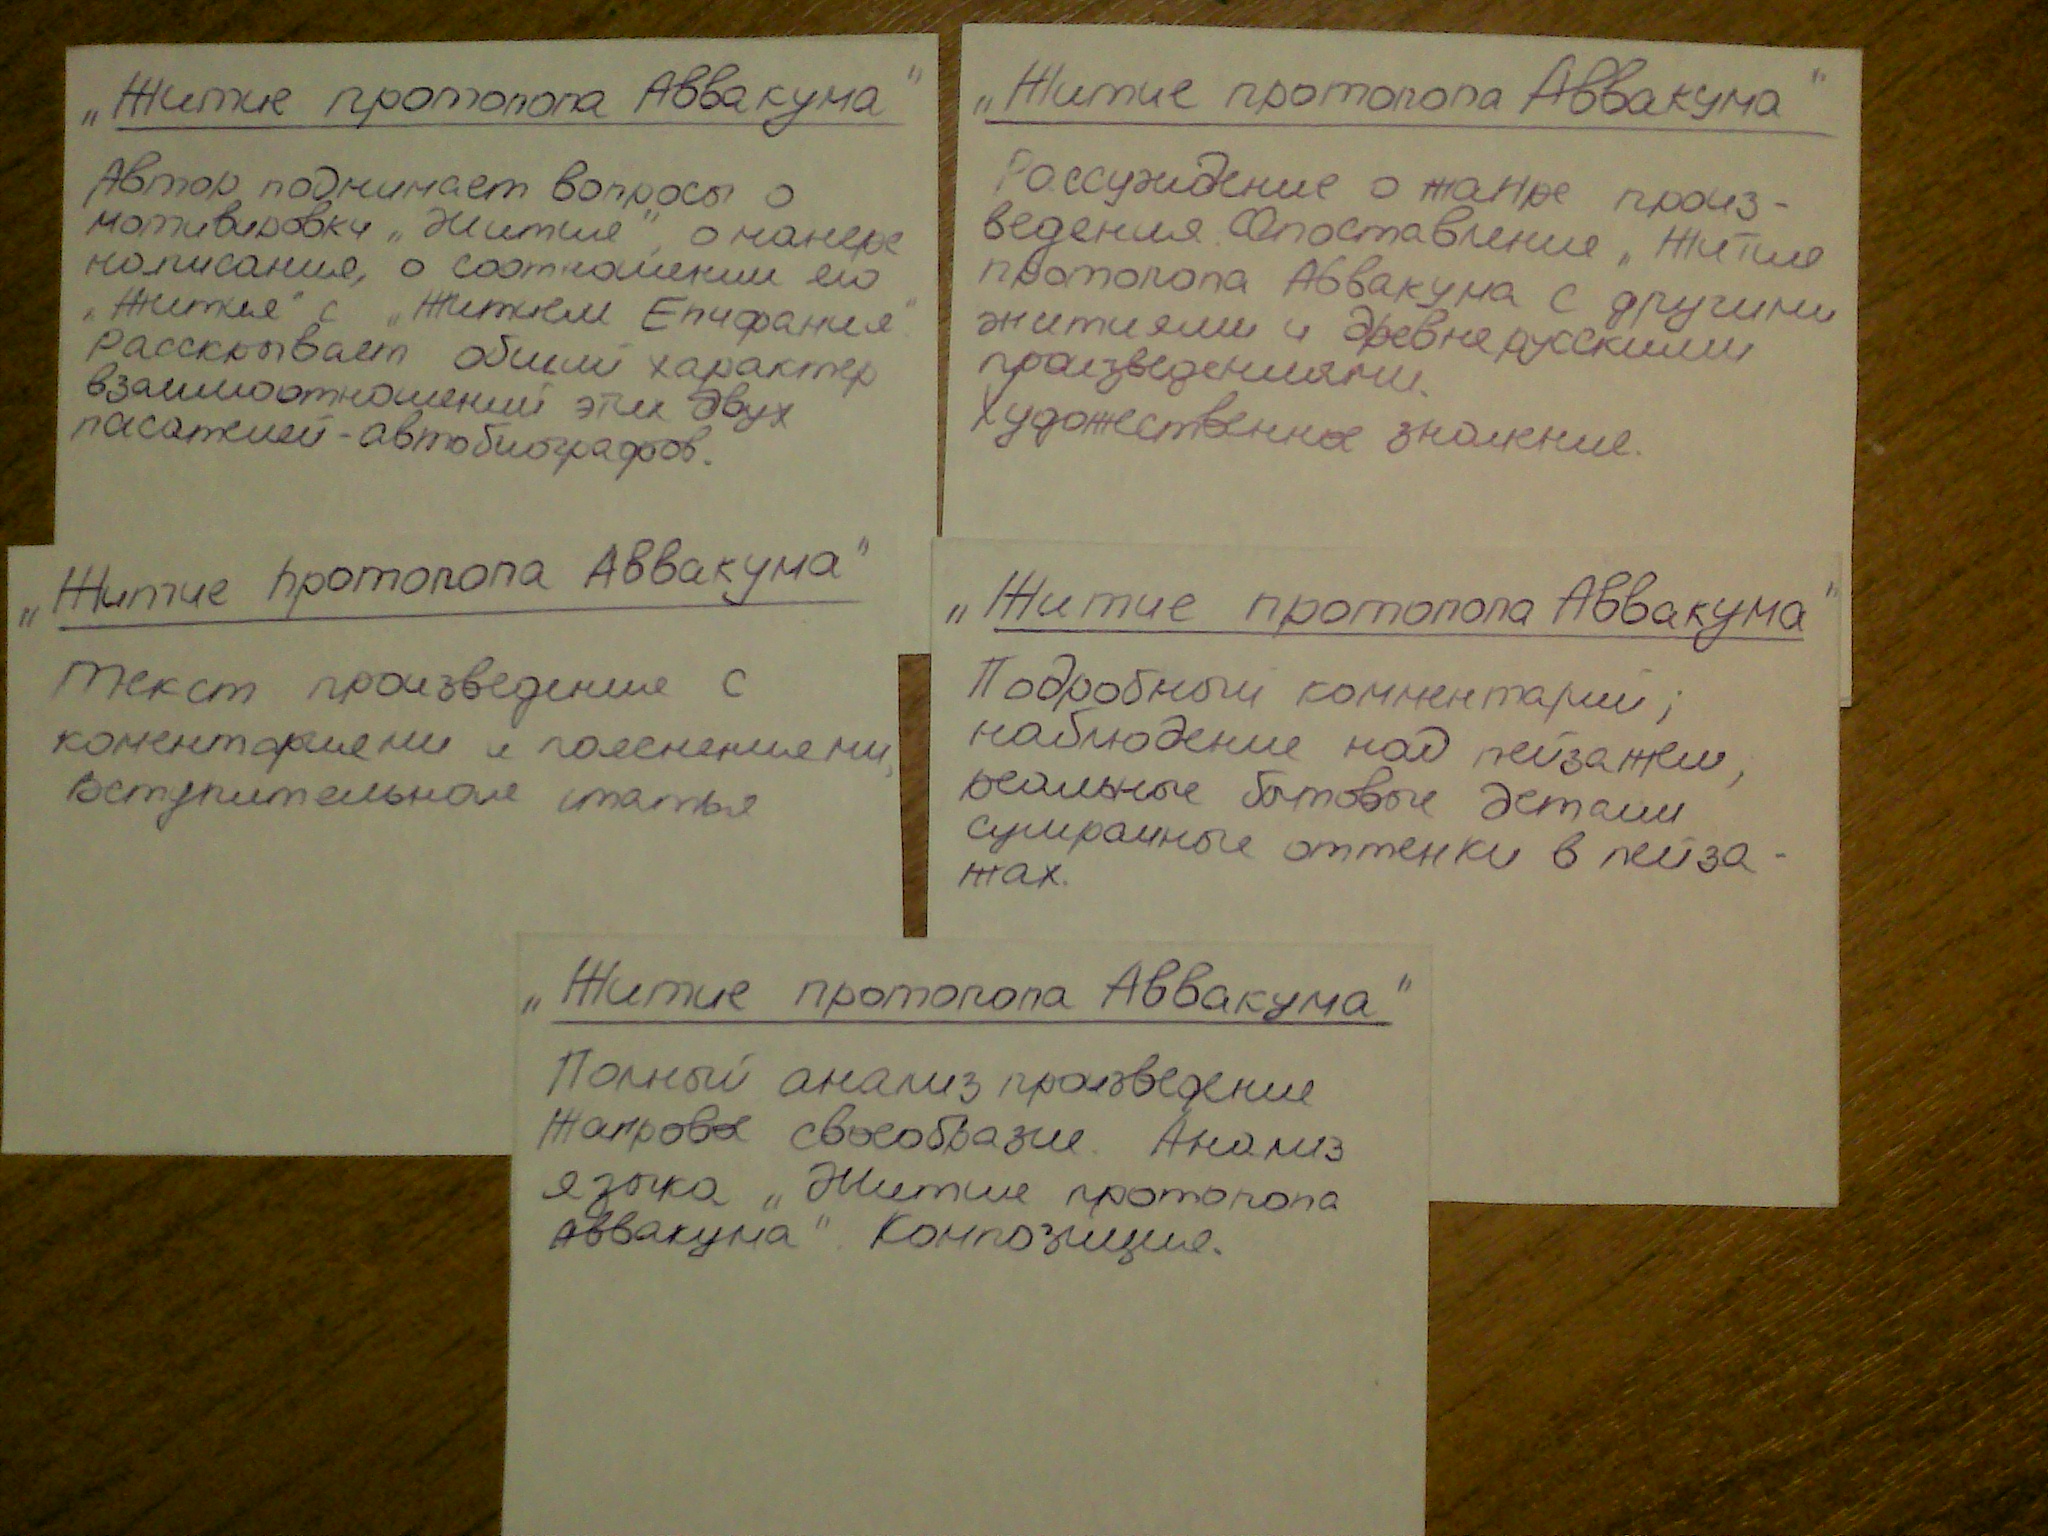 „Житие протопопа Аввакума"
Автор поднимает вопросы о
мотивировки „Житие", о манере
написания, о соотношении его
„Житья" с „Житием Епифания".
Расскрывает общий характер
взаимоотношений эти двух
писателей-автобиографов.
„Житие протопопа Аввакума"
Рассуждение о жанре произ-
ведения. Сопоставление „Житие
протопопа Аввакума с другими
житиями и древнерусскими
произведениями.
Художественное значение.
„Житие протопопа Аввакума"
Текст произведение с
коментариями и пояснениями,
вступительная статья
„Житие протопопа Аввакума"
Подробный комментарий;
наблюдение над пейзажем;
реальные бытовые детали
сумрачные оттенки в пейза-
жах.
„Житие протопопа Аввакума"
Полный анализ произведение
Жанровое своеобразие. Анализ
языка „Житие протопопа
Аввакума". Композиция.